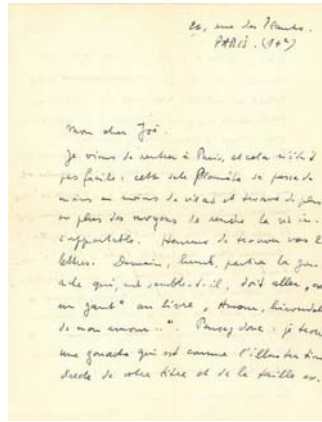 26, rue des Plantes.
PARIS. (14e)
Mon cher Joë.
Je viens de rentrer à Paris, et cela n'était
pas facile : cette sale Planète se passe de
moins en moins de visas et trouve de plus
en plus des moyens de rendre la vie in-
supportable. Heureux de trouver vos 2
lettres. Demain, lundi, partira la goua-
che qui, me semble-t-il, doit aller, "comme
un gant" au livre, "Amour, hirondelle
de mon amour..". Pensez donc : je trouve
une gouache qui est comme l'illustration
directe de votre titre et de la taille ex-